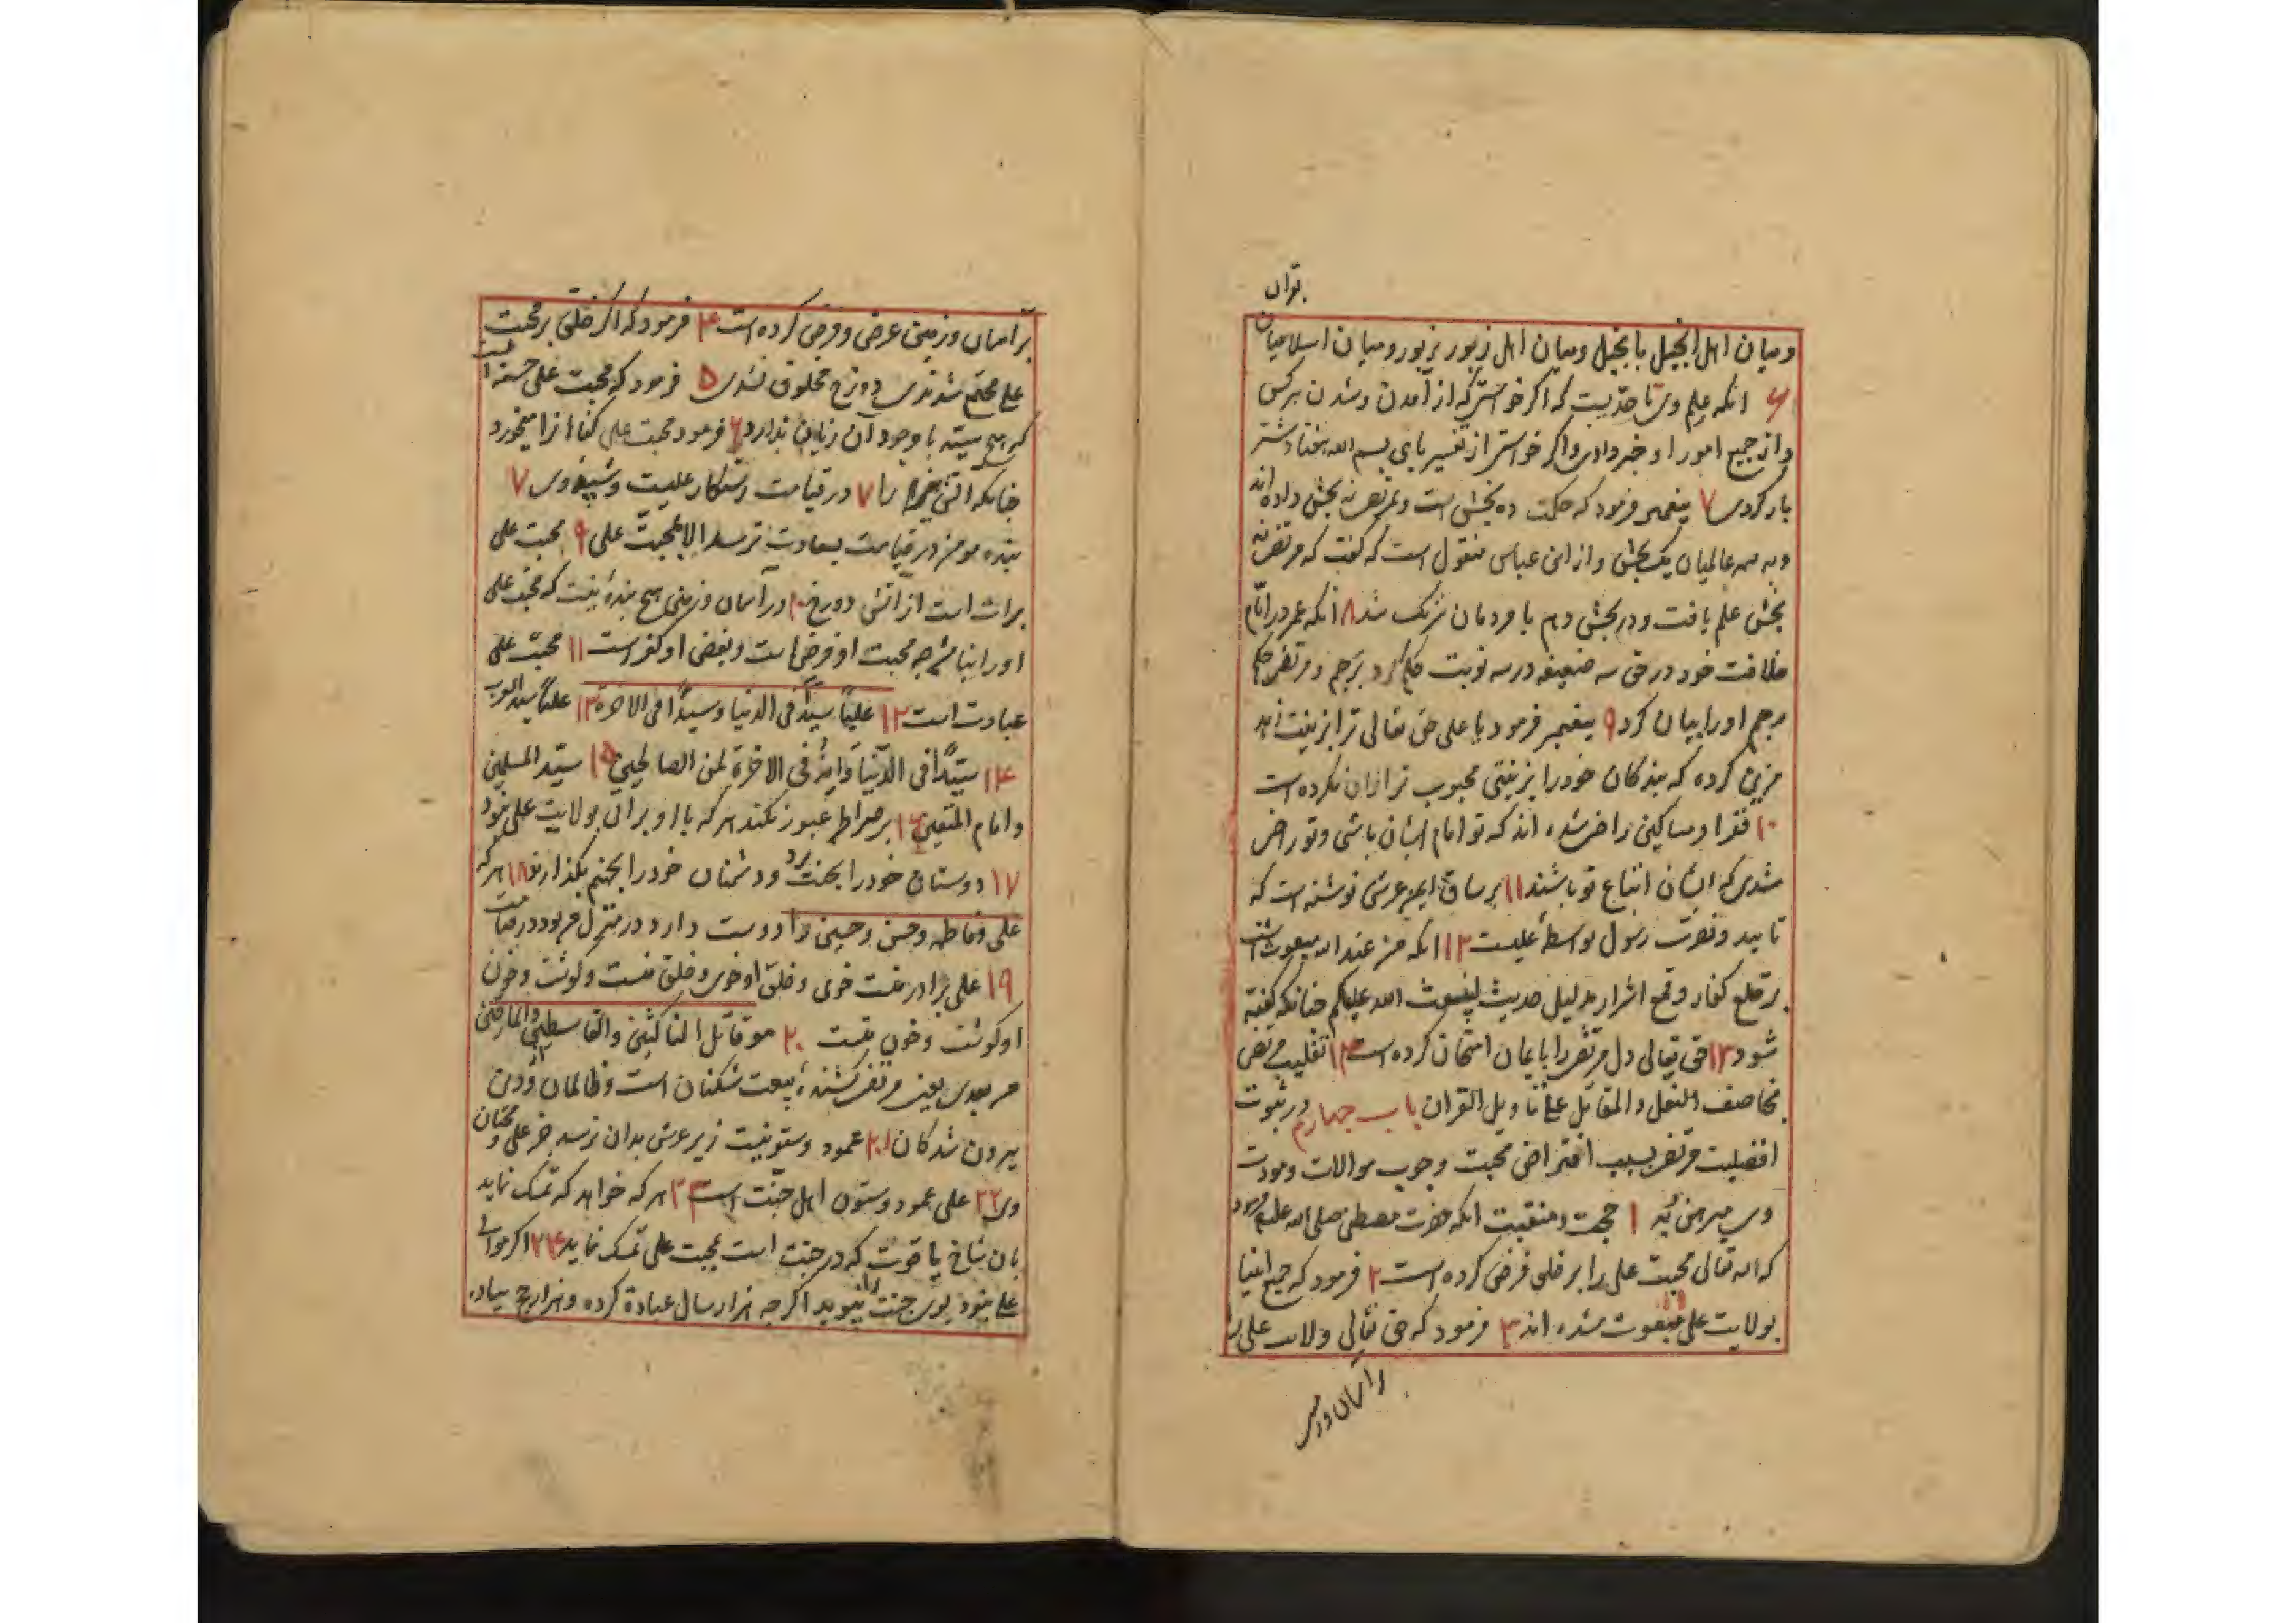 بقران
و میان اهل انجیل بانجیل و میان اهل زبور بزبور و میان اسلامیان
۶ انکه علم وی تا حدّیست که اگر خواستی که از آمدن و شدن هرکس
و از جمیع امور او خبر دادی و اگر خواستی از تفسیر بای بسم الله هفتاد شتر
بار کردی ۷ پیغمبر فرمود که حکمت ده بخش است و بمرتضی نه بخش داده اند
و به همه عالمیان یک بخش و از ابن عباس منقول است که گفت که مرتضی نه
بخش علم یافت و در بخش دهم با مردمان شریک شد ۸ انکه عمر در ایّام
خلافت خود در حق سه ضعیفه در سه نوبت حکم کرد برجم و مرتضی حکم
مرجم او را بیان کرد ۹ پیغمبر فرمود یا علی حق تعالی ترا بزینت زهد
مزین کرده که بندکان خود را بزینتی محبوب تر ازان نکرده است
۱۰ فقرا و مساکین راضی شده اند که تو امام ایشان باشی و تو راضی
شدی که ایشان اتباع تو باشند ۱۱ بر ساق ایمن عرش نوشته است که
تایید و نصرت رسول بواسطهٔ علیست ۱۲ انکه من عند الله مبعوث است
بر قلع کفار و قمع اشرار بدلیل حدیث لیبعث الله علیکم چنانکه گفته
شود ۱۳ حق تعالی دل مرتضی را بایمان امتحان کرده است ۱۴ تغلیب مرتضی
بخاصف النعل و المقاتل علی تاویل القران باب چهارم در ثبوت
افضلیت مرتضی بسبب افتراض محبت و جوب موالات و مودت
وی مبرهن به ۱ حجت و منقبت انکه حضرت مصطفی صلی الله علیه فرمود
که الله تعالی محبت علی را بر خلق فرض کرده است ۲ فرمود که جمیع انبیا
بولایت علی مبعوث شده اند ۳ فرمود که حق تعالی ولایت علی را
را اسمان و زمین
بر آسمان و زمین عرض و فرض کرده است ۴ فرمود که اگر خلق بر محبت
علی مجتمع شدندی دوزخ مخلوق نشدی ۵ فرمود که محبت علی حسنه است
که هیچ سیئه با وجود آن زیان ندارد ۶ فرمود محبت علی کناهانرا میخورد
چنانکه اتش هیزم را ۷ در قیامت رستکار علیست و شیعه وی ۷
بنده مومن در قیامت بسعادت نرسد الا بمحبّت علی ۹ محبت علی
برات است از اتش دوزخ ۱۰ در آسمان و زمین هیچ بندهٔ نیست که محبت علی
او را بنا شرجه محبت او فرض است و بغض او کفر است ۱۱ محبّت علی
عبادت است ۱۲ علیّا سیّدا فی الدنیا و سیدا فی الاخرة ۱۳ علیّا سید العرب
۱۴ سیّدا فی الدّنیا و انه فی الاخرة لمن الصالحین ۱۵ سیّد المسلمین
و امام المتقین ۱۶ بر صراط عبور نکند هر که با او براتی بولایت علی نبود
۱۷ دوستان خود را بجنت برد و دشمنان خود را بجهنم بگذارند ۱۸ هر که
علی و فاطمه و حسن و حسین را دوست دارد در منزل من بود در قیامت
۱۹ علی برادر منست خوی و خلق او خوی و خلق منست و کوشت و خون
او کوشت و خون منست ۲۰ هو قاتل الناکثین و القاسطین و المارقین
من بعدی یعنی مرتضی کشندهٔ بیعت شکنان است و ظالمان و از دین
بیرون شدکان ۲۱ عمود و ستونیست زیر عرش بدان نرسد جز علی و محبّان
وی ۲۲ علی عمود و ستون اهل جنّت است ۲۳ هر که خواهد که تمسک نماید
بان شاخ یاقوت که در جنت است بمحبت علی تمسک نماید ۲۴ اکر موالی
علی نبود بوی جنت را نبوید اکرچه هزار سال عبادة کرده و هزار حج پیاده